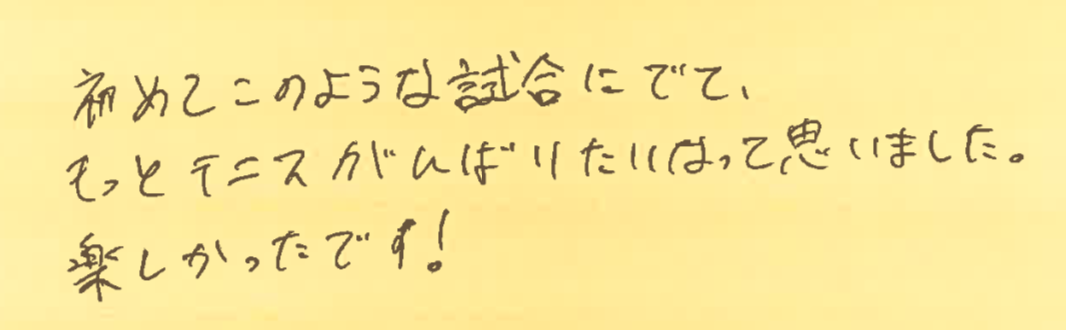 初めてこのような試合にでて、
もっとテニスがんばりたいなって思いました。
楽しかったです!